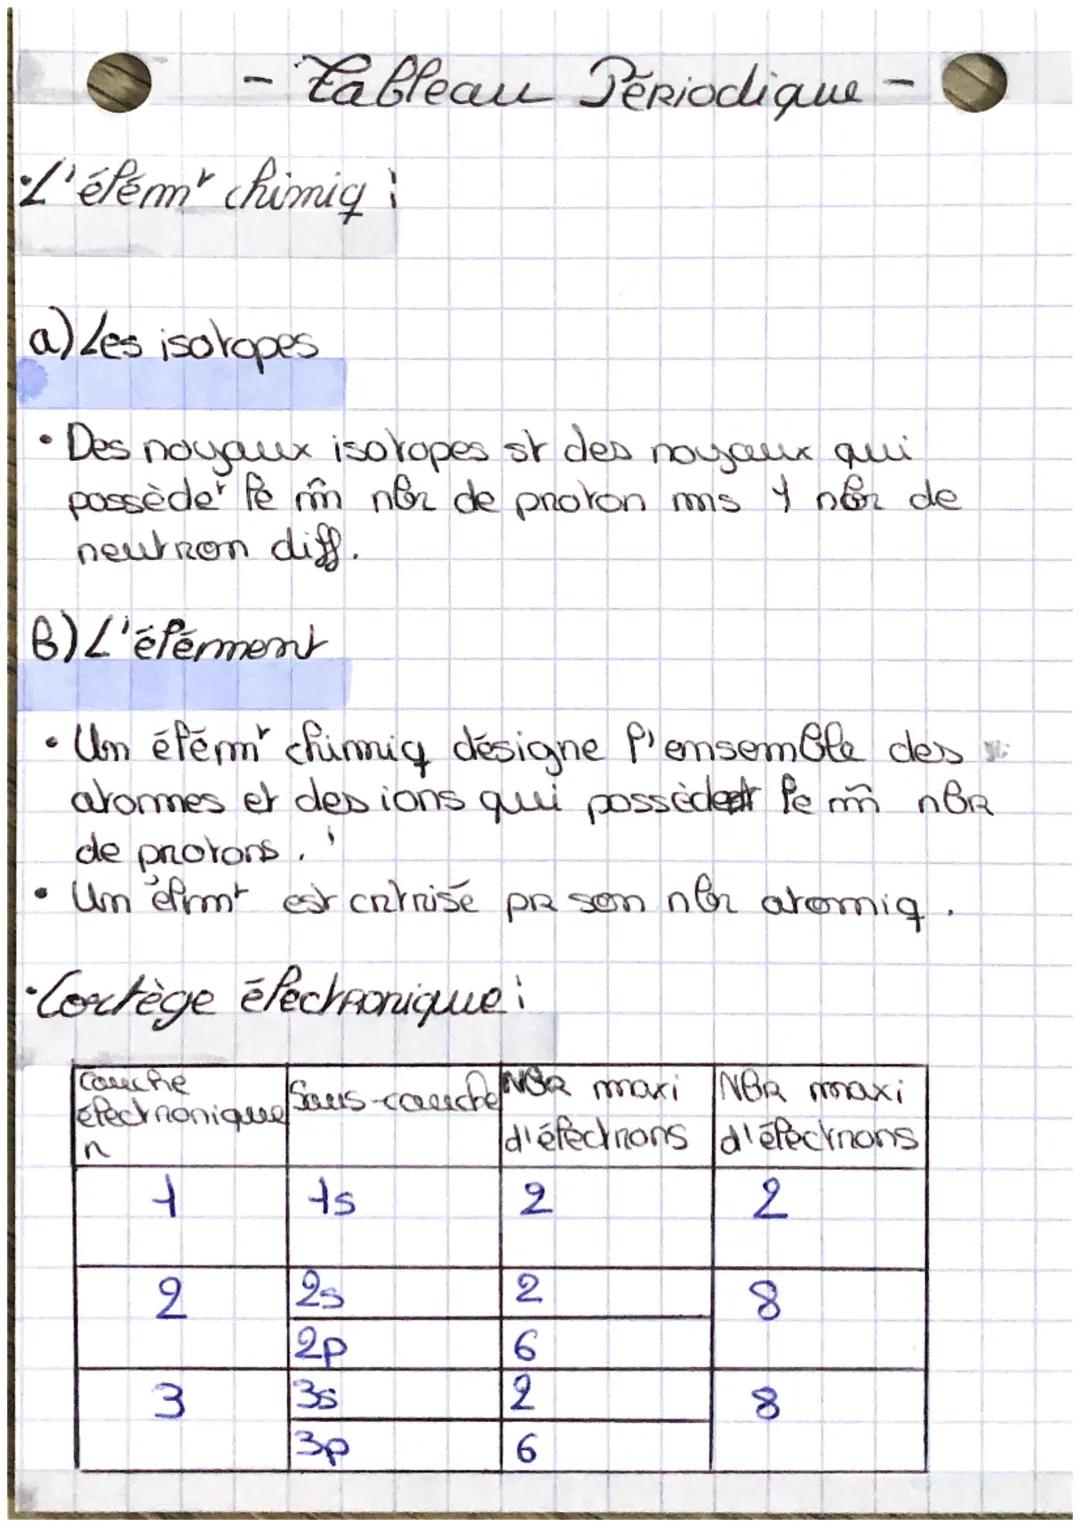 - Tableau Périodique -
• L'élémt chimiq :
a) Les isotopes
• Des noyaux isotopes st des noyaux qui
possèdet le m̂ nbr de proton ms 1 nbr de
neutron diff.
B) L'élément
• Un élémt chimiq désigne l'ensemble des
atomes et des ions qui possèdent le m̂ nBR
de protons.
• Un élmt est crtrisé pR son nbr atomiq.
• Cortège électronique :
Couche électronique n | Sous-couche | NBR maxi d'électrons | NBR maxi d'électrons
1 | 1s | 2 | 2
2 | 2s | 2 | 8
2p | 6
3 | 3s | 2 | 8
3p | 6